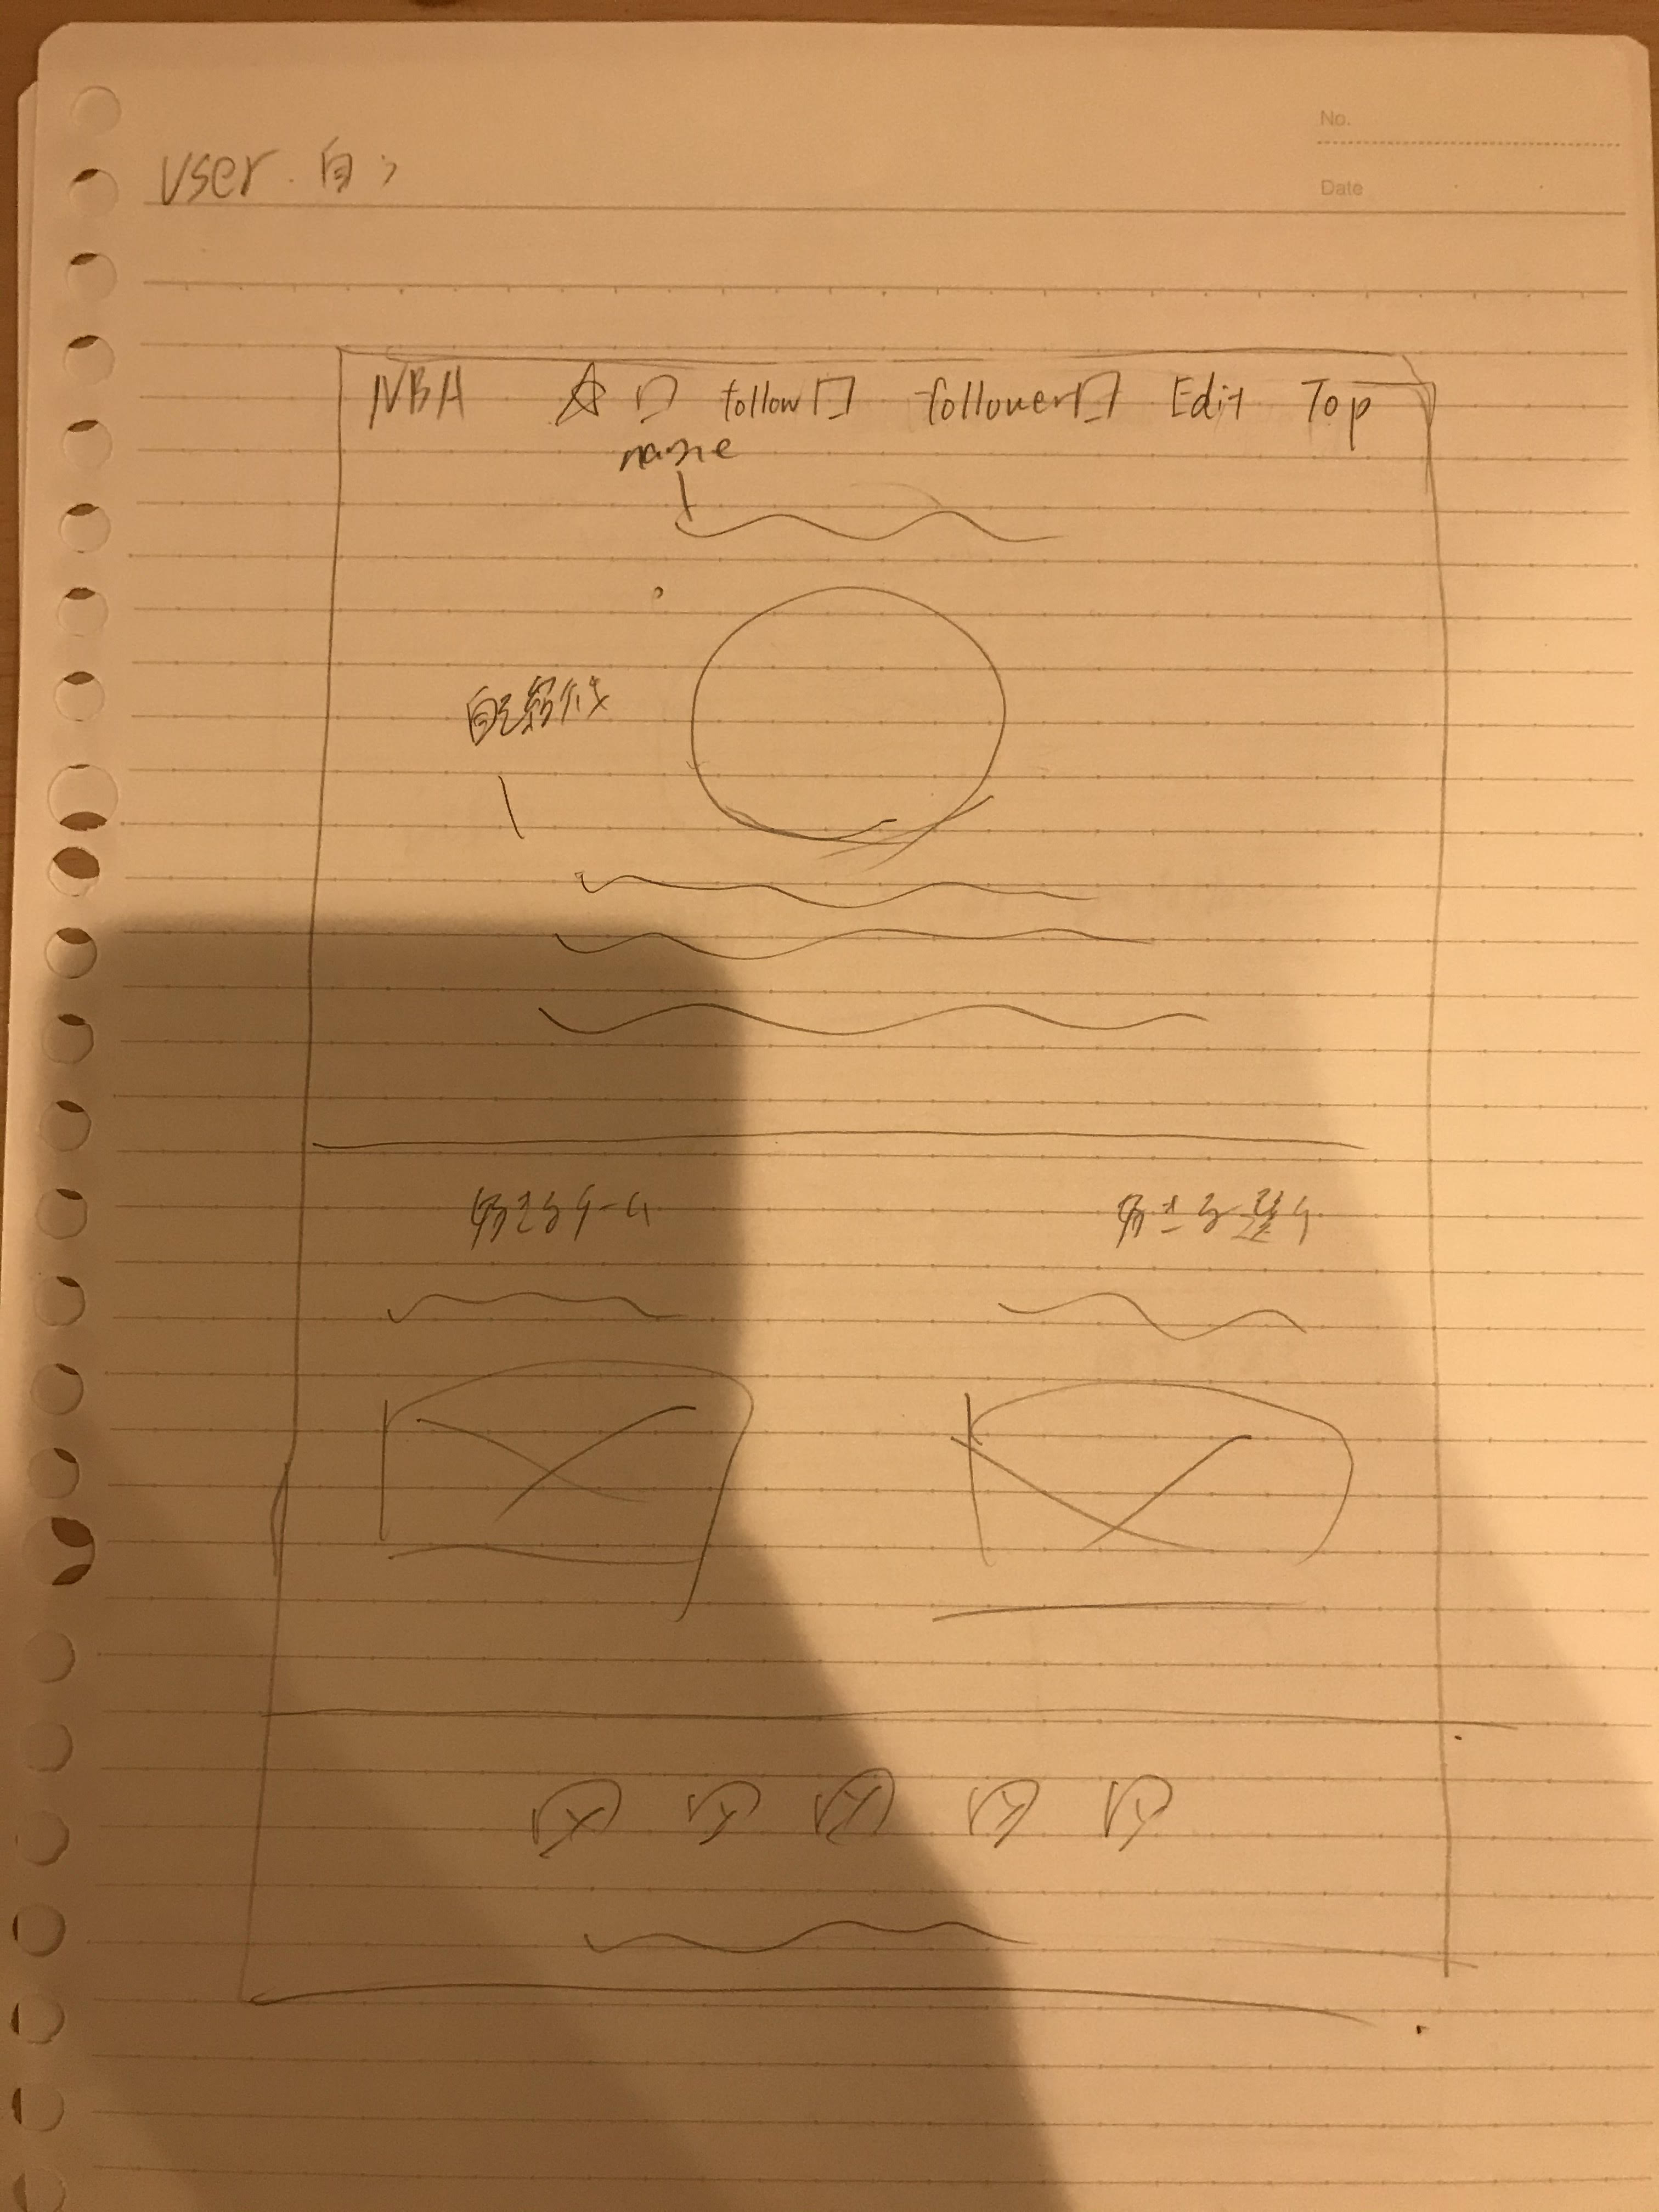 No.
Date
user. 自
NBA ☆ follow follower Edit Top
name
自己紹介
好きなチーム
好きな選手